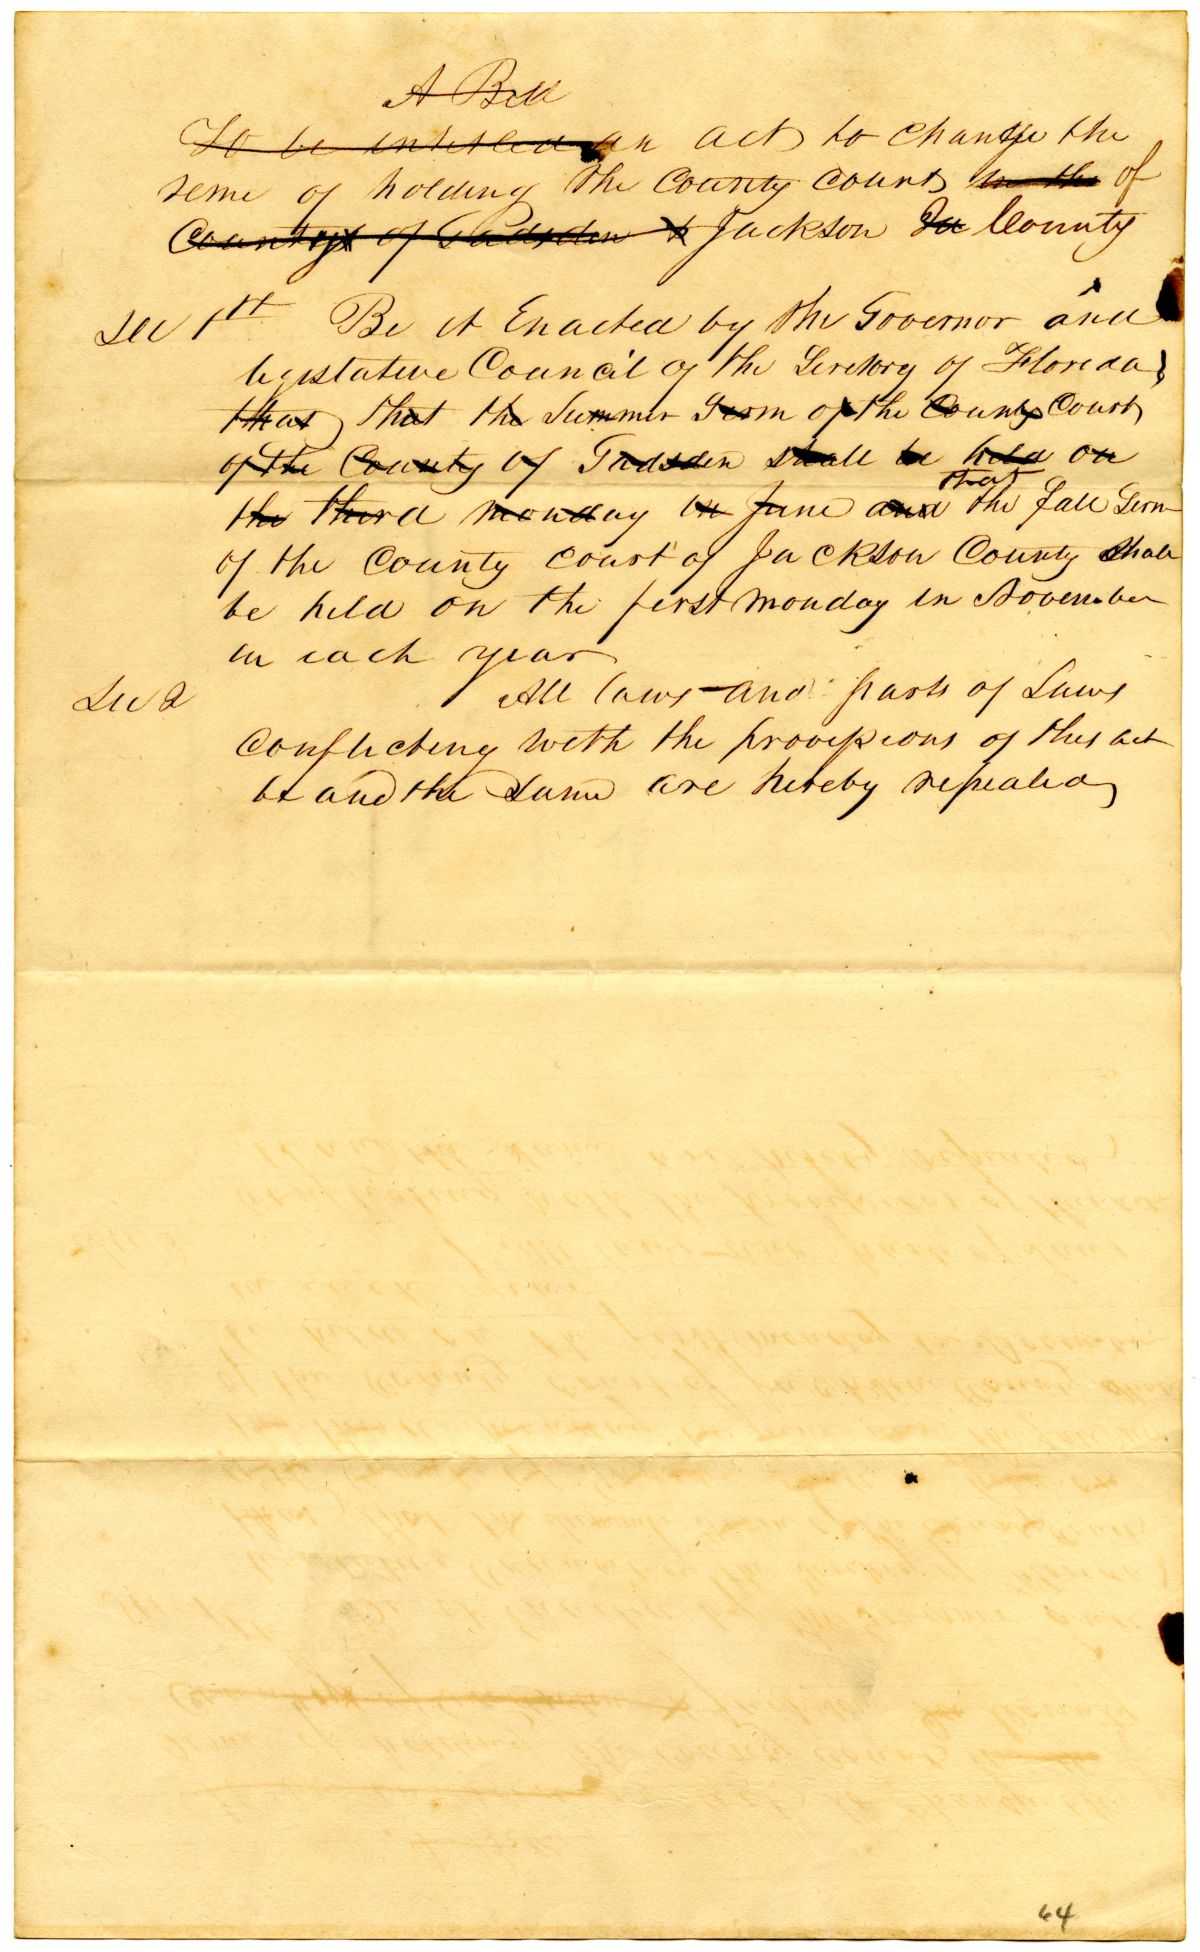 A Bill
To be intitled an act to change the
time of holding the County Court in the of
County of Gadsden & Jackson County
Sec 1st Be it Enacted by the Governor and
legislative Council of the Teretory of Floreda,
that, that the Summer Term of the County Court,
of the County of Gadsden shall be held on
that
the third monday in June and the Fall Term
of the County court of Jackson County Shall
be held on the first monday in November
in each year
Sec 2 All laws and parts of Laws
Conflicting with the provisions of this act
be and the Same are hereby repealed
64